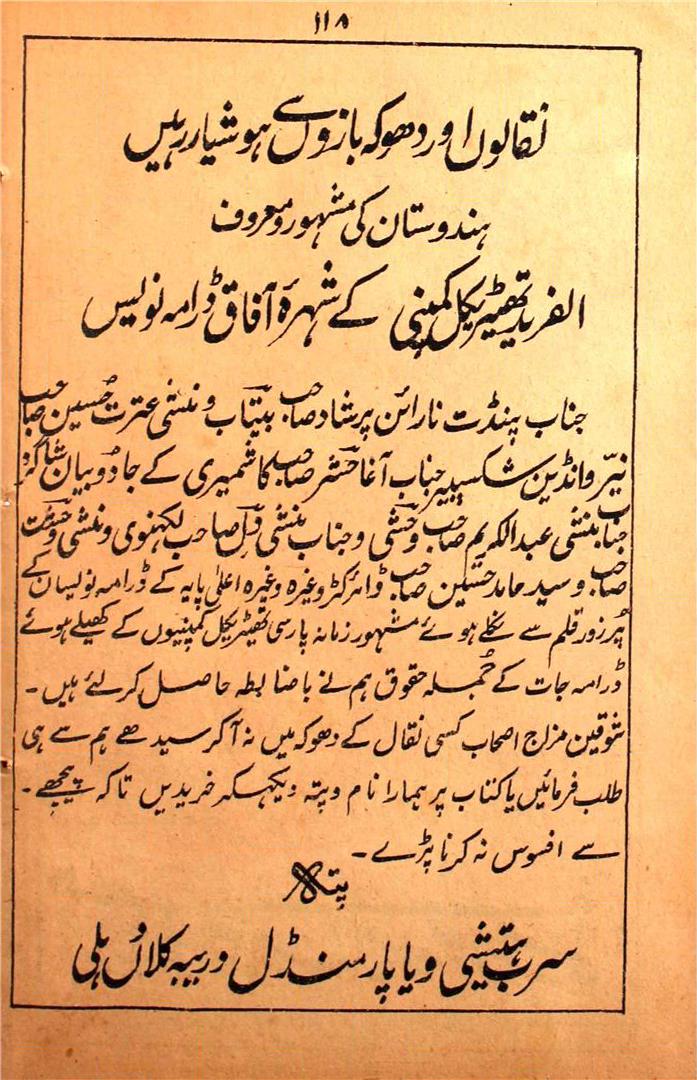 ۱۱۸
نقالوں اور دھوکہ بازوں سے ہوشیار رہیں
ہندوستان کی مشہور و معروف
الفریڈ تھیٹریکل کمپنی کے شہرۂ آفاق ڈرامہ نویس
جناب پنڈت نارائن پرشاد صاحب بیتاب و منشی عترت حسین صاحب
نیّر و انڈین شکسپیر جناب آغا حشر صاحب کاشمیری کے جادو بیان شاگرد
جناب منشی عبدالکریم صاحب وحشی و جناب منشی دل صاحب لکھنوی و منشی وحشت
صاحب و سید حامد حسین صاحب ڈائرکٹر وغیرہ وغیرہ اعلیٰ پایہ کے ڈرامہ نویسان کے
پُر زور قلم سے نکلے ہوئے مشہور زمانہ پارسی تھیٹریکل کمپنیوں کے کھیلے ہوئے
ڈرامہ جات کے جُملہ حقوق ہم نے باضابطہ حاصل کر لئے ہیں۔
شوقین مزاج اصحاب کسی نقال کے دھوکہ میں نہ آ کر سیدھے ہم سے ہی
طلب فرمائیں یا کتاب پر ہمارا نام و پتہ دیکھکر خریدیں تاکہ پیچھے۔
سے افسوس نہ کرنا پڑے۔
پتہ
سرب ہتیشی ویاپار منڈل دریبہ کلاں دہلی